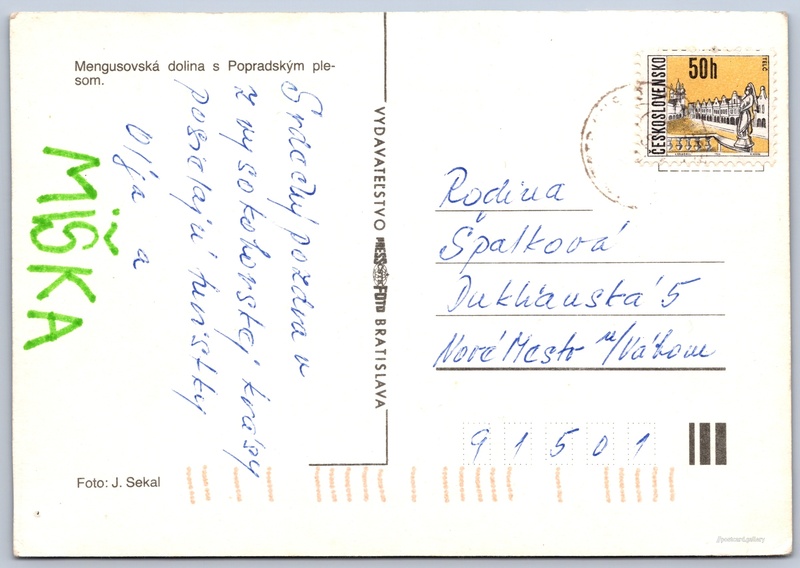 Mengusovská dolina s Popradským ple-
som.
Srdečný pozdrav
z vysokohorskej krásy
posielajú turistky
Olja a
MIŠKA
Foto: J. Sekal
VYDAVATEĽSTVO PRESSFOTO BRATISLAVA
ČESKOSLOVENSKO
50h
TELČ
Rodina
Špalková
Duklianska 5
Nové Mesto n/Váhom
91501
//postcard.gallery